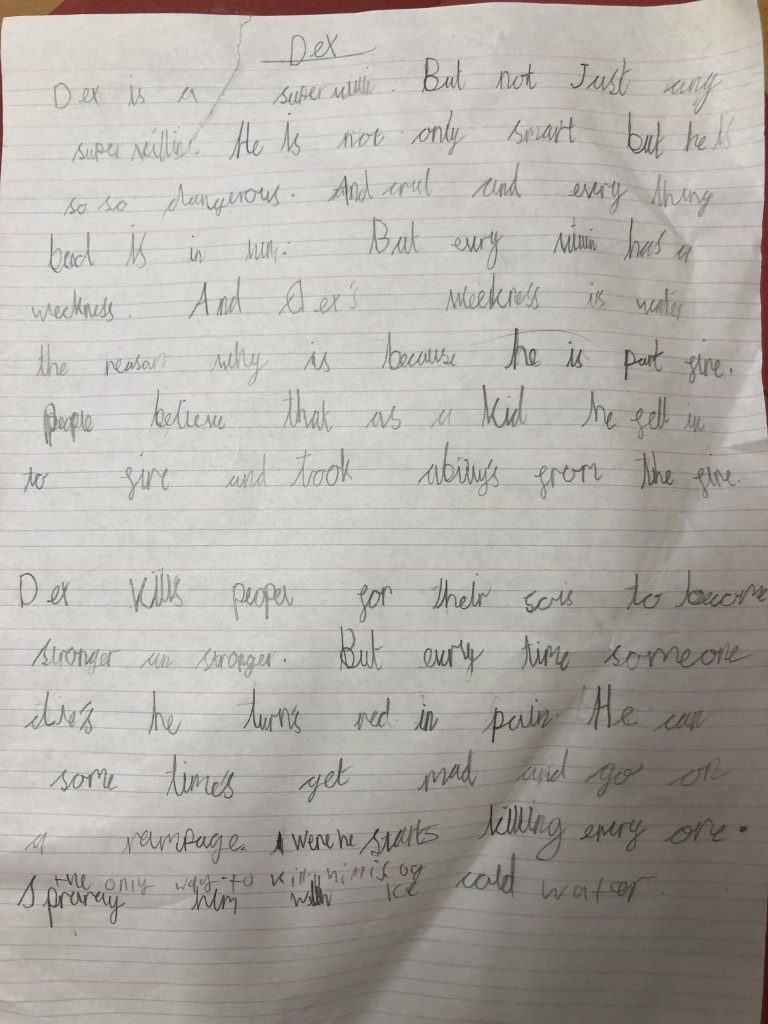 Dex
Dex is a super villin. But not Just any
super villin. He is not only smart but he is
so so dangerous. And crul and every thing
bad is in him. But evry villin has a
weekness. And Dex's weekness is water
the reason why is because he is part fire.
people believe that as a kid he fell in
to fire and took abiliys from the fire.
Dex kills peopel for their sols to become
stronger an stronger. But evry time someone
die's he turns red in pain He can
some times get mad and go on
a rampage. were he starts killing every one.
the only way to kill him is by
spraray him with ice cold water.